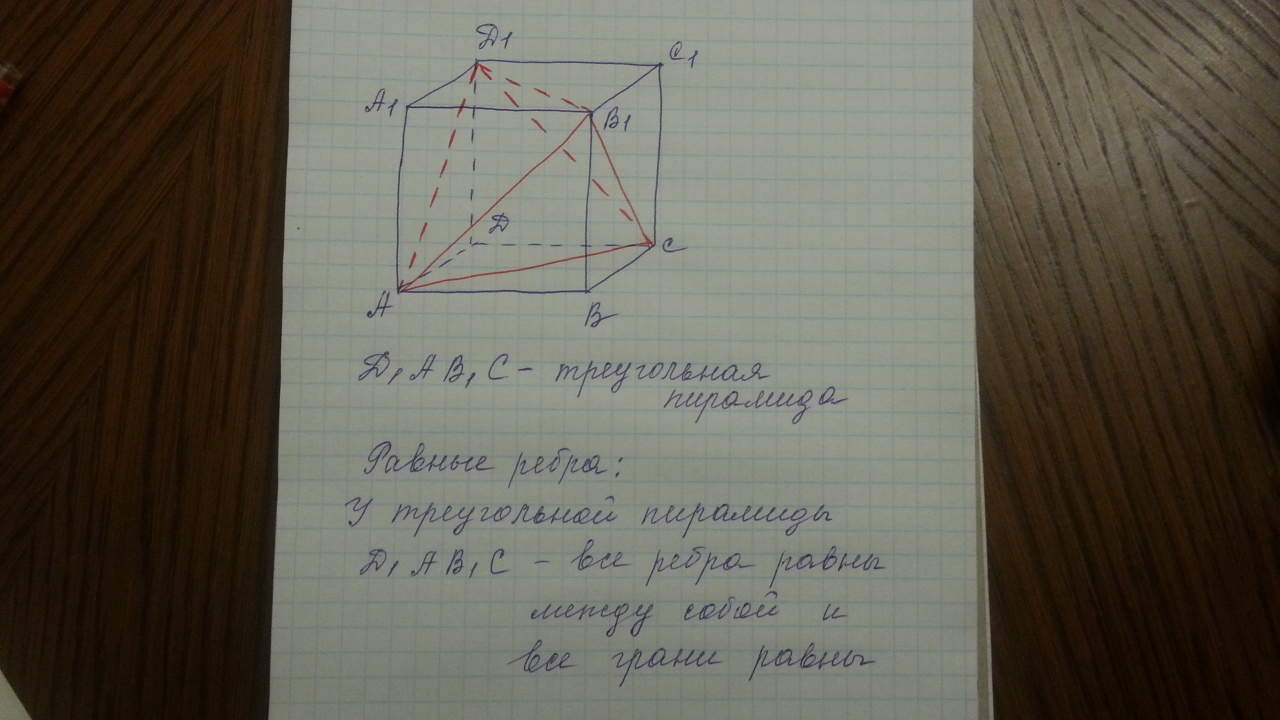 Д1
С1
А1
В1
Д
С
А
В
Д1 А В1 С – треугольная
пирамида
Равные ребра:
У треугольной пирамиды
Д1 А В1 С – все ребра равны
между собой и
все грани равны